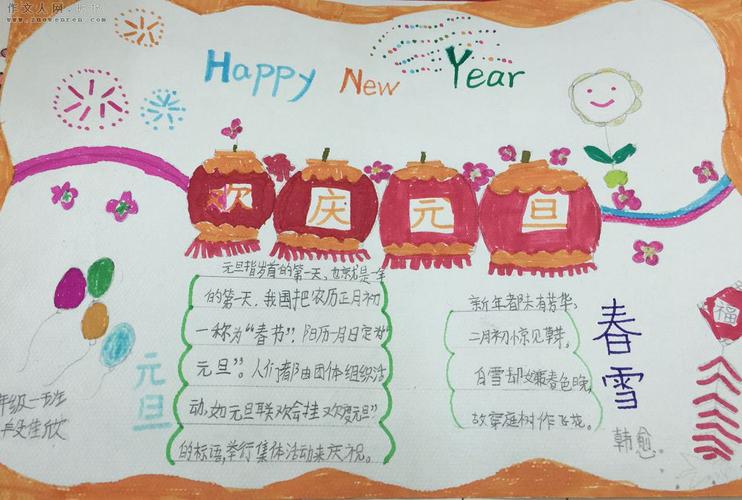 作文人网
www.zuowenren.com
Happy New Year
欢庆元旦
元旦指岁首的第一天,也就是一年
的第一天,我国把农历正月初
一称为“春节”,阳历一月一日定为
元旦”。人们都由团体组织活
动,如元旦联欢会挂“欢度元旦”
的标语,举行集体活动来庆祝。
新年都未有芳华,
二月初惊见草芽。
白雪却嫌春色晚,
故穿庭树作飞花。
春雪
韩愈
福
元旦
年级一班
段佳欣